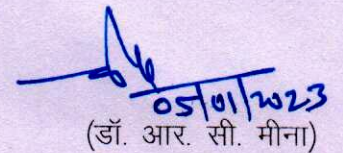 05/01/2023
(डॉ. आर. सी. मीना)